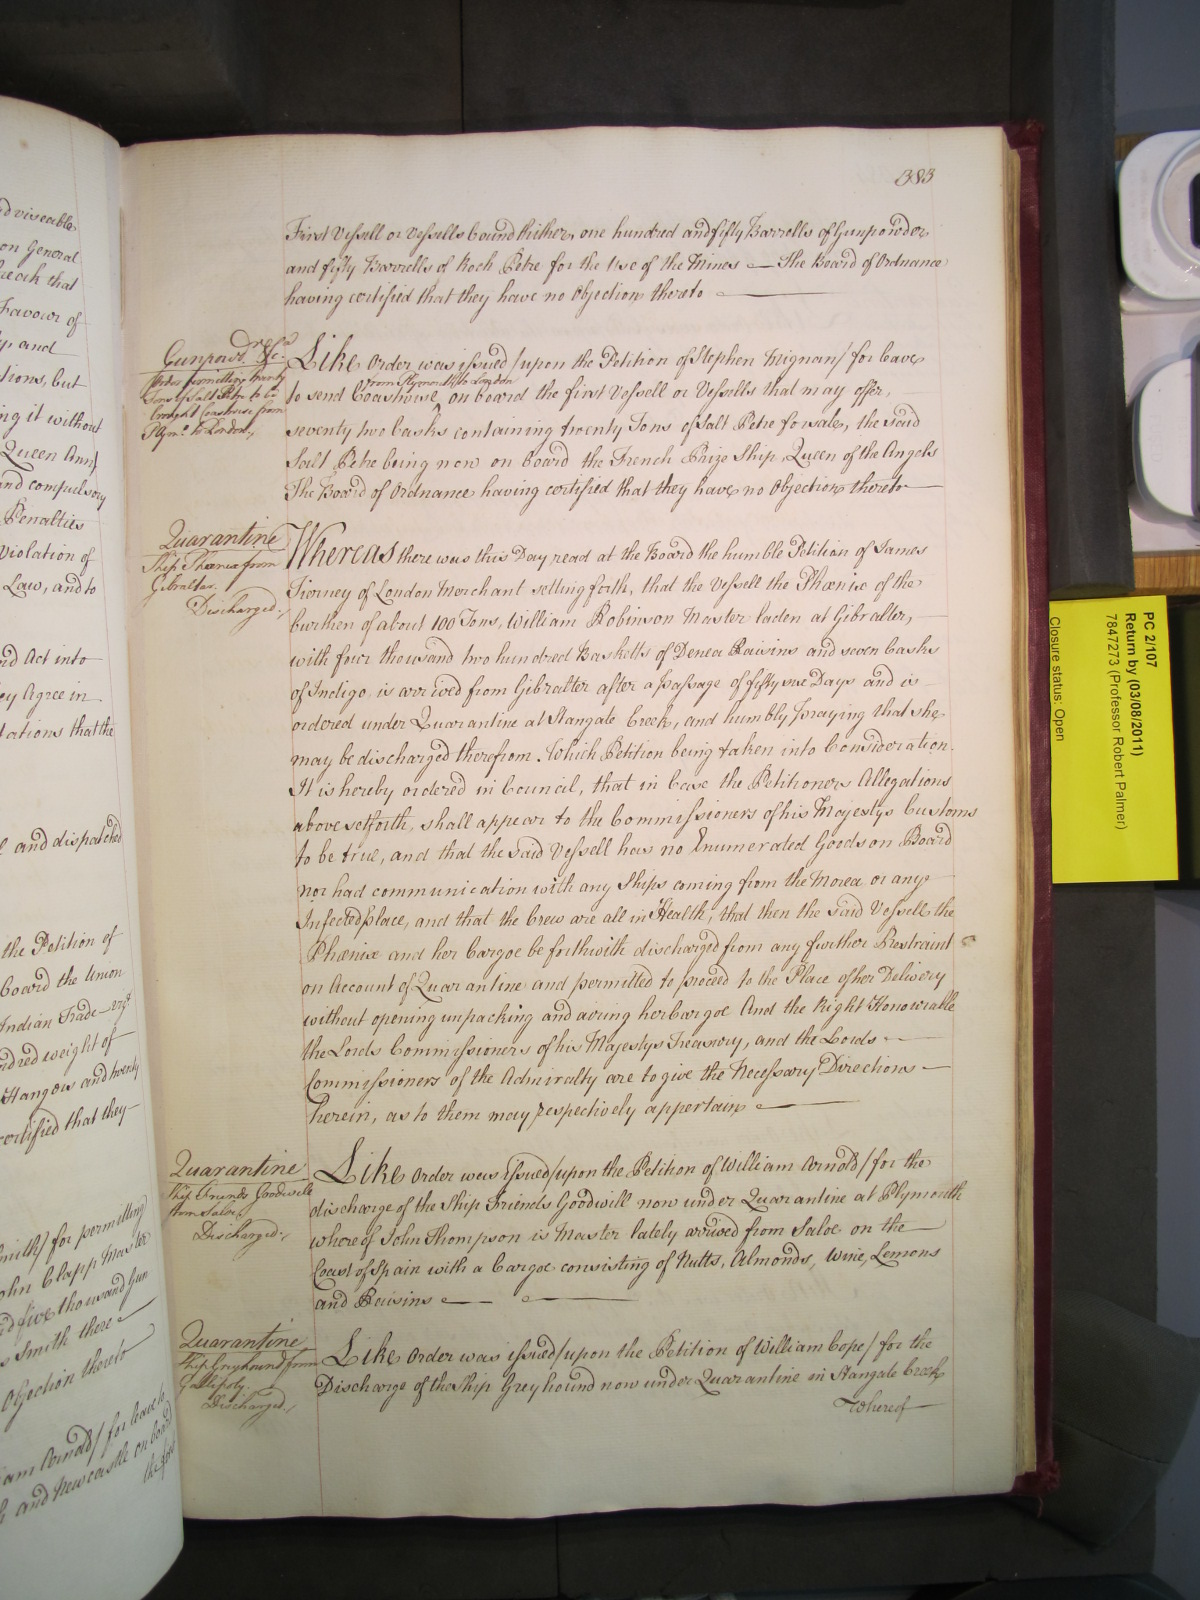 383
First Vessell or Vessells bound thither, one hundred and fifty Barrells of Gunpowder
and fifty Barrells of Roch Petre for the Use of the Mines — The Board of Ordnance
having certified that they have no Objection thereto
Gunpowdr. &c.
Order permitting twenty
Tons of Salt Petre to be
brought Coastwise from
Plymo. to London.
Like Order was issued /upon the Petition of Stephen Mignan/ for leave
from Plymouth to London
to send Coastwise on board the first Vessell or Vessells that may offer,
seventy two Casks containing twenty Tons of Salt Petre for sale, the said
Salt Petre being now on board the French Prize Ship Queen of the Angels
The Board of Ordnance having certified that they have no Objection thereto
Quarantine
Ship Phœnix from
Gibraltar.
Discharged.
Whereas there was this Day read at the Board the humble Petition of James
Tierney of London Merchant setting forth, that the Vessell the Phœnix of the
burthen of about 100 Tons, William Robinson Master laden at Gibralter,
with four thousand two hundred Basketts of Denea Raisins and seven Casks
of Indigo is arrived from Gibralter after a passage of fifty one Days and is
ordered under Quarantine at Stangate Creek, and humbly praying that she
may be discharged therefrom. Which Petition being taken into Consideration.
It is hereby ordered in Council, that in Case the Petitioners Allegations
above setforth, shall appear to the Commissioners of his Majestys Customs
to be true, and that the said Vessell has no Enumerated Goods on Board
nor had communication with any Ships coming from the Morea or any
Infected place, and that the Crew are all in Health, that then the said Vessell the
Phœnix and her Cargoe be forthwith discharged from any further Restraint
on Account of Quarantine and permitted to proceed to the Place of her Delivery
without opening unpacking and airing her Cargoe And the Right Honourable
the Lords Commissioners of his Majestys Treasury, and the Lords
Commissioners of the Admiralty are to give the Necessary Directions
herein, as to them may respectively appertain
Quarantine
Ship Friends Goodwill
from Saloe.
Discharged.
Like Order was issued /upon the Petition of William Arnold/ for the
discharge of the Ship Friends Goodwill now under Quarantine at Plymouth
whereof John Thompson is Master lately arrived from Saloe on the
Coast of Spain with a Cargoe consisting of Nutts, Almonds, Wine, Lemons
and Raisins
Quarantine
Ship Greyhound from
Gallipoly.
Discharged.
Like Order was issued /upon the Petition of William Cope/ for the
Discharge of the Ship Greyhound now under Quarantine in Stangate Creek
Whereof
dviseable
on General
that
Favour of
and
tions, but
ng it without
Queen Ann
and compulsory
Penalties
Violation of
Law, and to
nd Act into
ey Agree in
tations that the
and dispatched
the Petition of
board the Union
Indian Trade
ndred weight of
Hangers and twenty
certified that they
Smith/ for permitting
John Clapp Master
five thousand Gun
Smith there
Objection thereto
iam Arnold/ for leave to
and Newcastle on board
the first
PC 2/107
Return by (03/08/2011)
7847273 (Professor Robert Palmer)
Closure status: Open